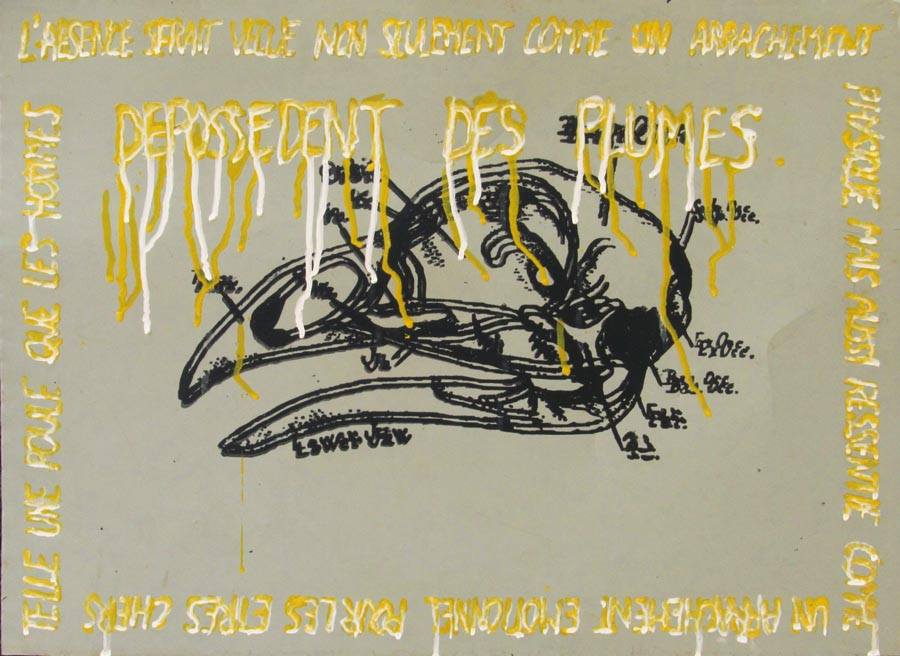 L'ABSENCE SERAIT VECUE NON SEULEMENT COMME UN ARRACHEMENT
PHYSIQUE MAIS AUSSI RESSENTIE COMME
UN ARRACHEMENT EMOTIONNEL POUR LES ETRES CHERS
TELLE UNE POULE QUE LES HOMMES
DEPOSSEDENT DES PLUMES
Sup. Occ.
Ex. Occ.
Bas. Occ.
Lower Jaw